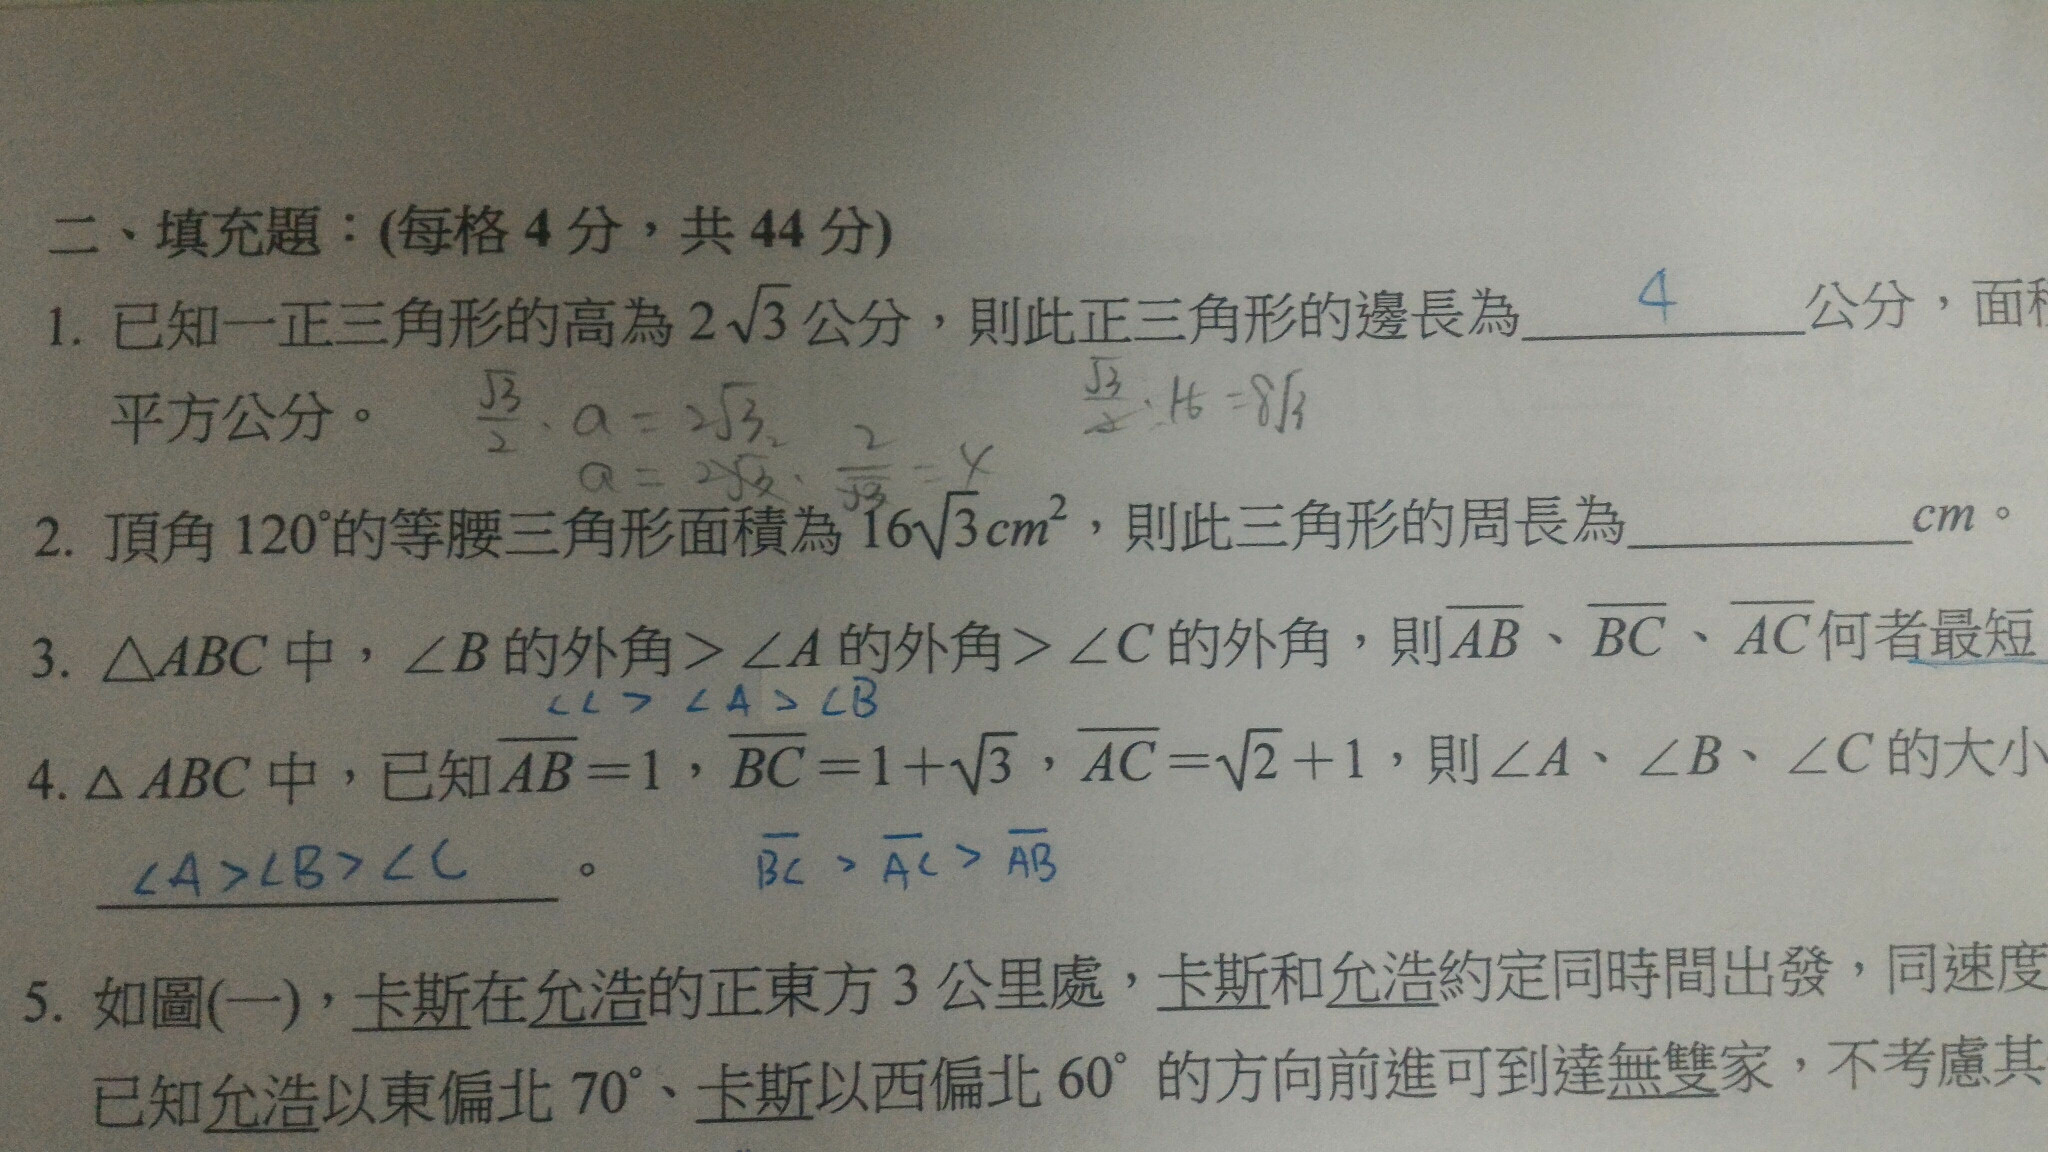 二、填充題：(每格 4 分，共 44 分)
1. 已知一正三角形的高為 2√3 公分，則此正三角形的邊長為 4 公分，面積
平方公分。 √3/2 · a = 2√3 √3/2 · 16 = 8√3
a = 2√3 · 2/√3 = 4
2. 頂角 120°的等腰三角形面積為 16√3 cm²，則此三角形的周長為________cm。
3. △ABC 中，∠B 的外角＞∠A 的外角＞∠C 的外角，則AB、BC、AC何者最短
∠C > ∠A > ∠B
4. △ ABC 中，已知AB＝1，BC＝1＋√3，AC＝√2＋1，則∠A、∠B、∠C 的大小
∠A＞∠B＞∠C 。 BC > AC > AB
5. 如圖(一)，卡斯在允浩的正東方 3 公里處，卡斯和允浩約定同時間出發，同速度
已知允浩以東偏北 70°、卡斯以西偏北 60° 的方向前進可到達無雙家，不考慮其